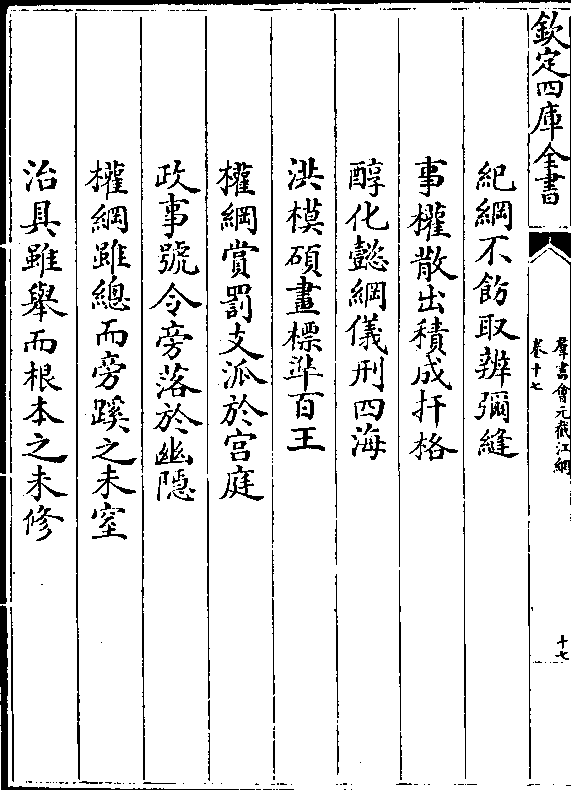 欽定四庫全書
羣書會元截江網
卷十七
十七
紀綱不飭取辦彌縫
事權散出積成扞格
醇化懿綱儀刑四海
洪模碩畫標準百王
權綱賞罰支派於宫庭
政事號令旁落於幽隠
權綱雖總而旁蹊之未窒
治具雖舉而根本之未修